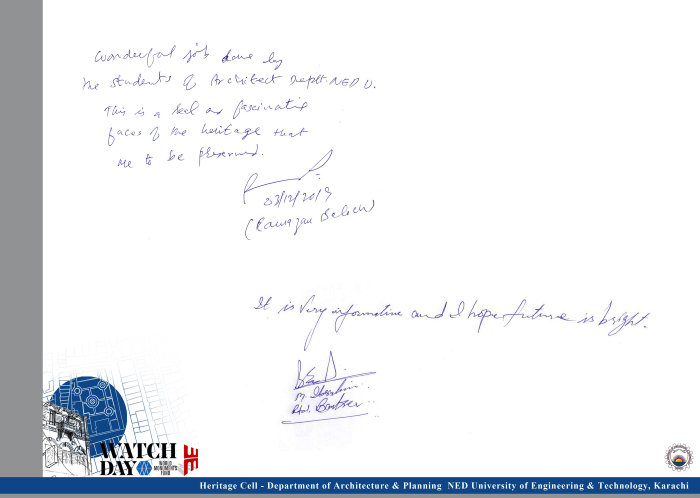 Wonderful job done by
the students of Architect Deptt. NED U.
This is a real and fascinative
faces of the heritage that
are to be preserved.
03/12/2019
(Ramazan Baloch)
It is Very informative and I hope future is bright.
M.
WATCH
DAY
WORLD
MONUMENTS
FUND
Heritage Cell - Department of Architecture & Planning NED University of Engineering & Technology, Karachi